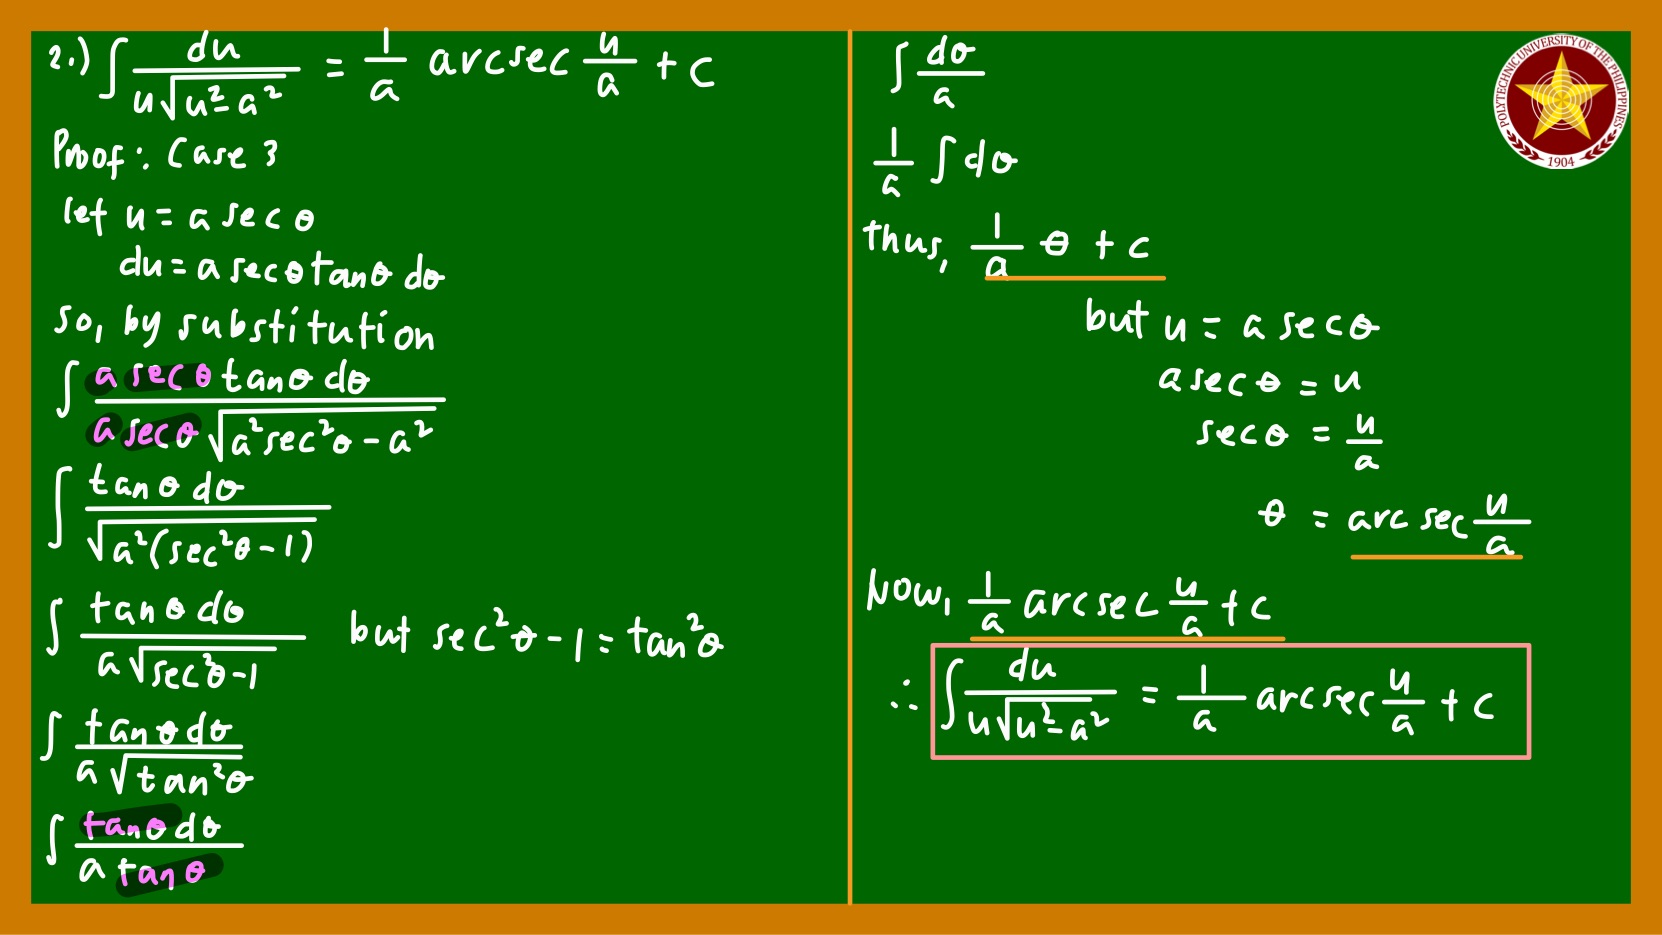 2.) ∫ du / (u√(u² - a²)) = 1/a arcsec u/a + c
Proof: Case 3
let u = a sec θ
du = a sec θ tan θ dθ
so, by substitution
∫ a sec θ tan θ dθ / (a sec θ √(a² sec² θ - a²))
∫ tan θ dθ / √(a²(sec² θ - 1))
∫ tan θ dθ / (a√(sec² θ - 1)) but sec² θ - 1 = tan² θ
∫ tan θ dθ / (a√(tan² θ))
∫ tan θ dθ / (a tan θ)
∫ dθ / a
1/a ∫ dθ
thus, 1/a θ + c
but u = a sec θ
a sec θ = u
sec θ = u/a
θ = arc sec u/a
Now, 1/a arcsec u/a + c
∴ ∫ du / (u√(u² - a²)) = 1/a arcsec u/a + c
POLYTECHNIC UNIVERSITY OF THE PHILIPPINES
1904